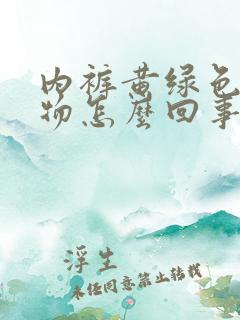 内裤黄绿色
物怎麽回事
浮生
未经同意禁止转载